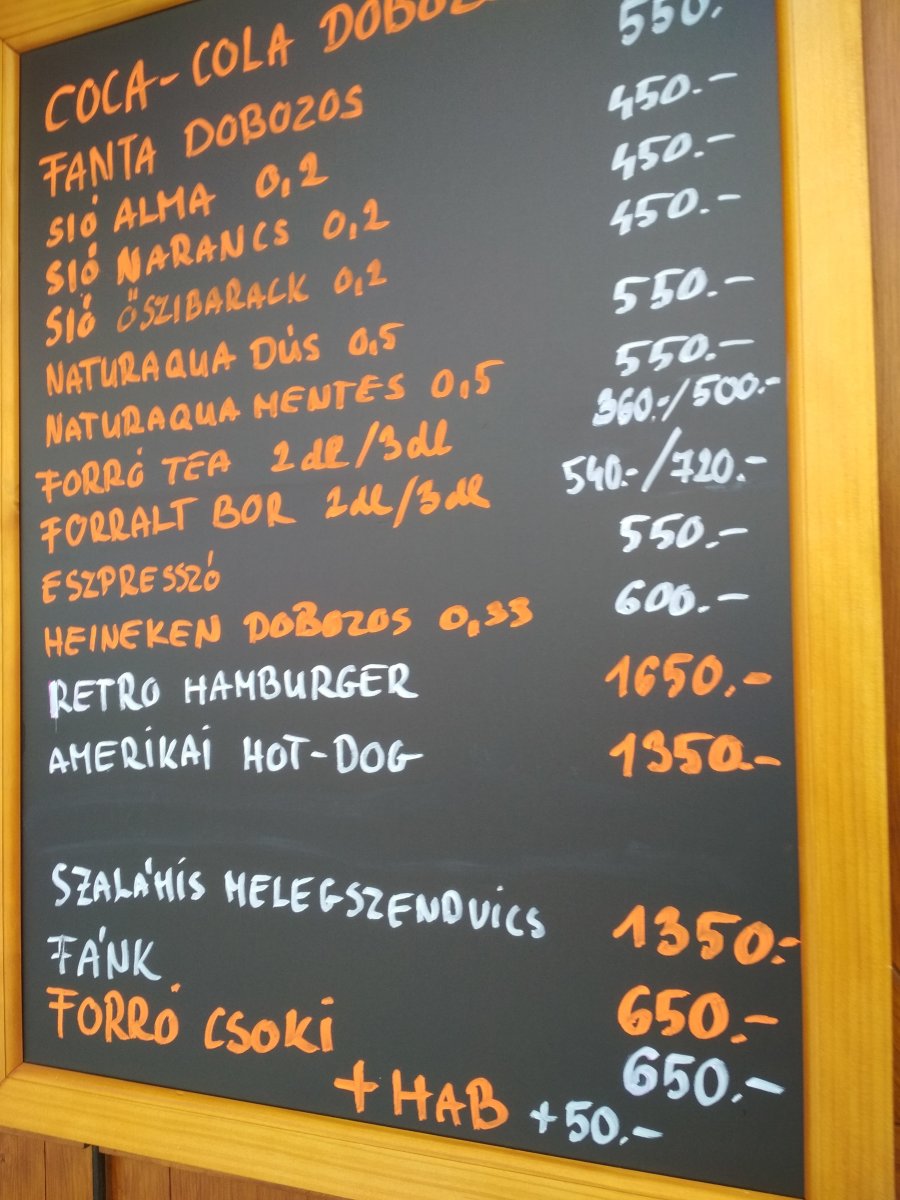 COCA-COLA
FANTA DOBOZOS 550.-
SIÓ ALMA 0,2 450.-
SIÓ NARANCS 0,2 450.-
SIÓ ŐSZIBARACK 0,2 450.-
NATURAQUA DÚS 0,5 550.-
NATURAQUA MENTES 0,5 550.-
FORRÓ TEA 2dl/3dl 360.-/500.-
FORRALT BOR 2dl/3dl 540.-/720.-
ESZPRESSZÓ 550.-
HEINEKEN DOBOZOS 0,33 600.-
RETRO HAMBURGER 1650.-
AMERIKAI HOT-DOG 1350.-
SZALÁMIS MELEGSZENDVICS 1350.-
FÁNK 650.-
FORRÓ CSOKI 650.-
+ HAB +50.-